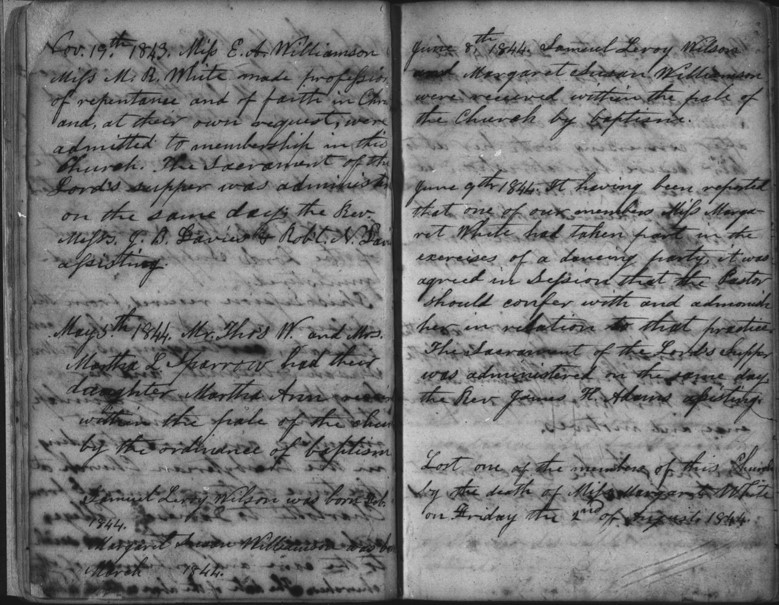 Nov. 19th 1843. Miss E. A. Williamson
Miss M. R. White made profession
of repentance and of faith in Chr
and, at their own request, were
admitted to membership in this
Church. The Sacrament of the
Lord's supper was administ
on the same day; the Rev.
Messrs. J. B. Davies & Robt. N. Dav
assisting
May 5th 1844. Mr. Thos W. and Mrs.
Martha L. Sparrow had their
daughter Martha Ann
within the pale of the chur
by the ordinance of baptism
Samuel Leroy Wilson was born Feb.
1844.
Margaret Susan Williamson was bo
March 1844.
June 8th, 1844. Samuel Leroy Wilson
and Margaret Susan Williamson
were received within the pale of
the Church by baptism.
June 9th 1844. It having been reported
that one of our members Miss Marga-
ret White had taken part in the
exercises of a dancing party, it was
agreed in Session that the Pastor
should confer with and admonish
her in relation to that practice
The Sacrament of the Lord's Supp
was administered on the same day
the Rev. James H. Adams assisting.
Lost one of the members of this Church
by the death of Miss Margaret White
on Friday the 2nd of August 1844